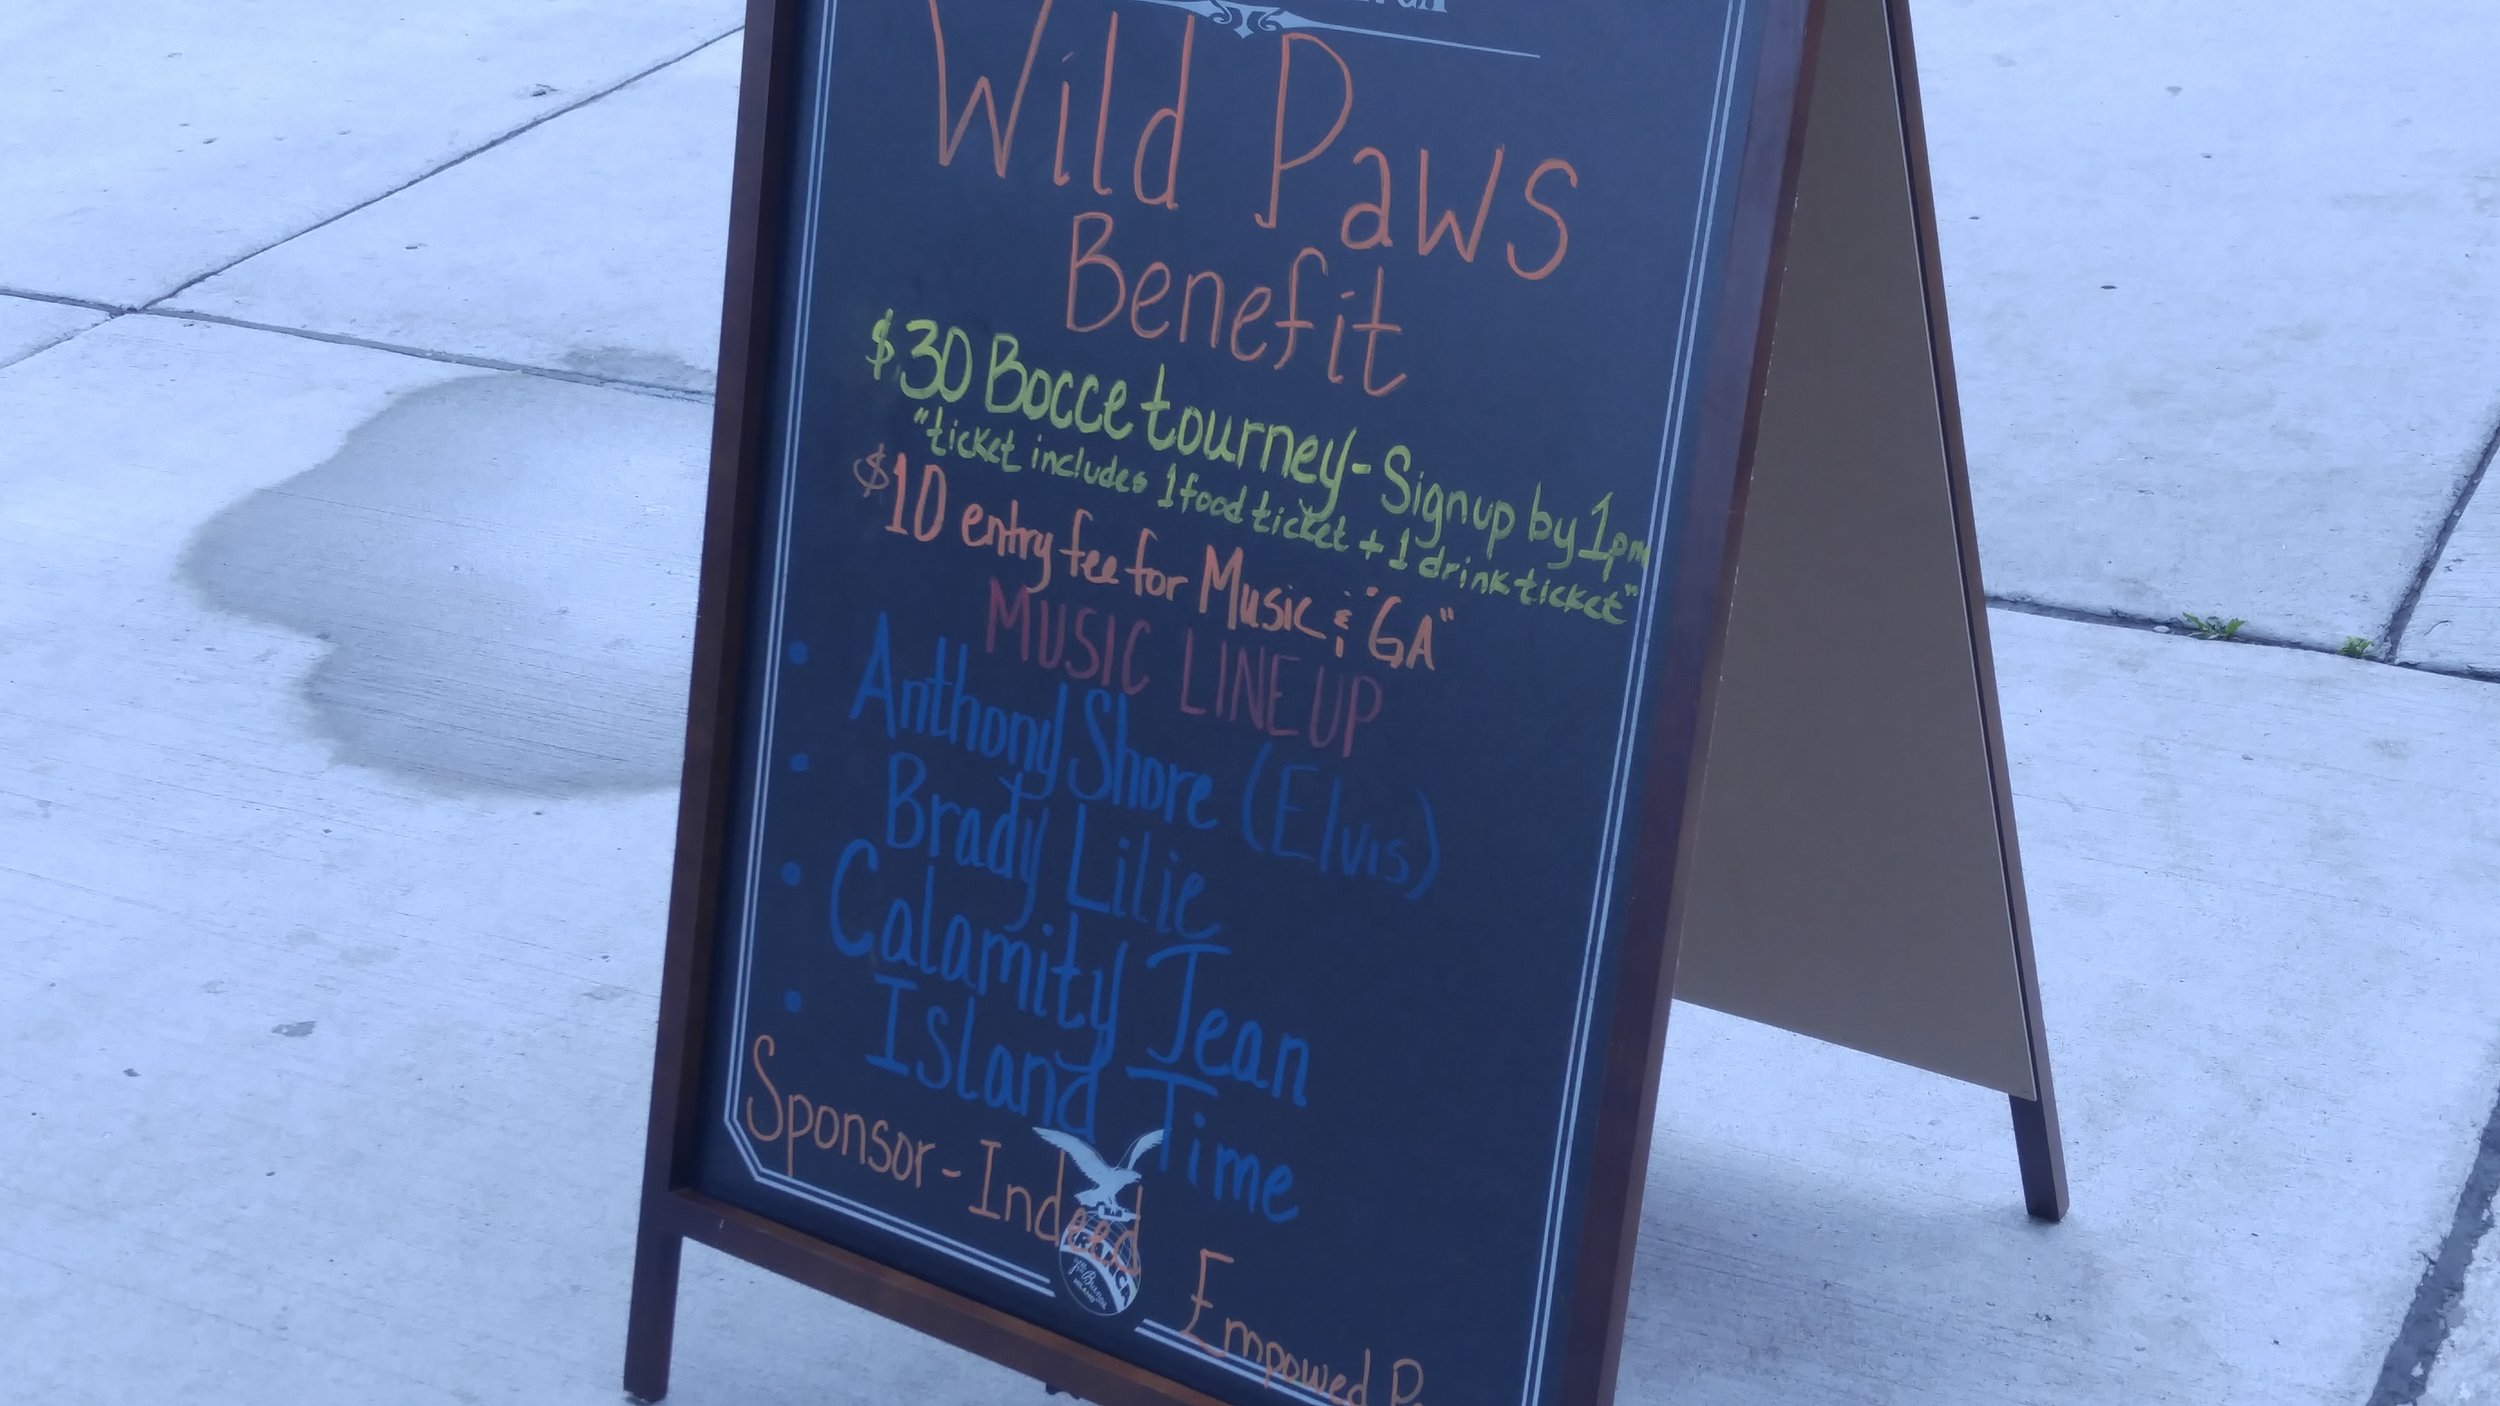 Wild Paws
Benefit
$30 Bocce tourney - Sign up by 1pm
"ticket includes 1 food ticket + 1 drink ticket"
$10 entry fee for Music & "GA"
MUSIC LINE UP
• Anthony Shore (Elvis)
• Brady Lilie
• Calamity Jean
• Island Time
Sponsor - Indeed
Empowed P
FRATELLI
MILANO